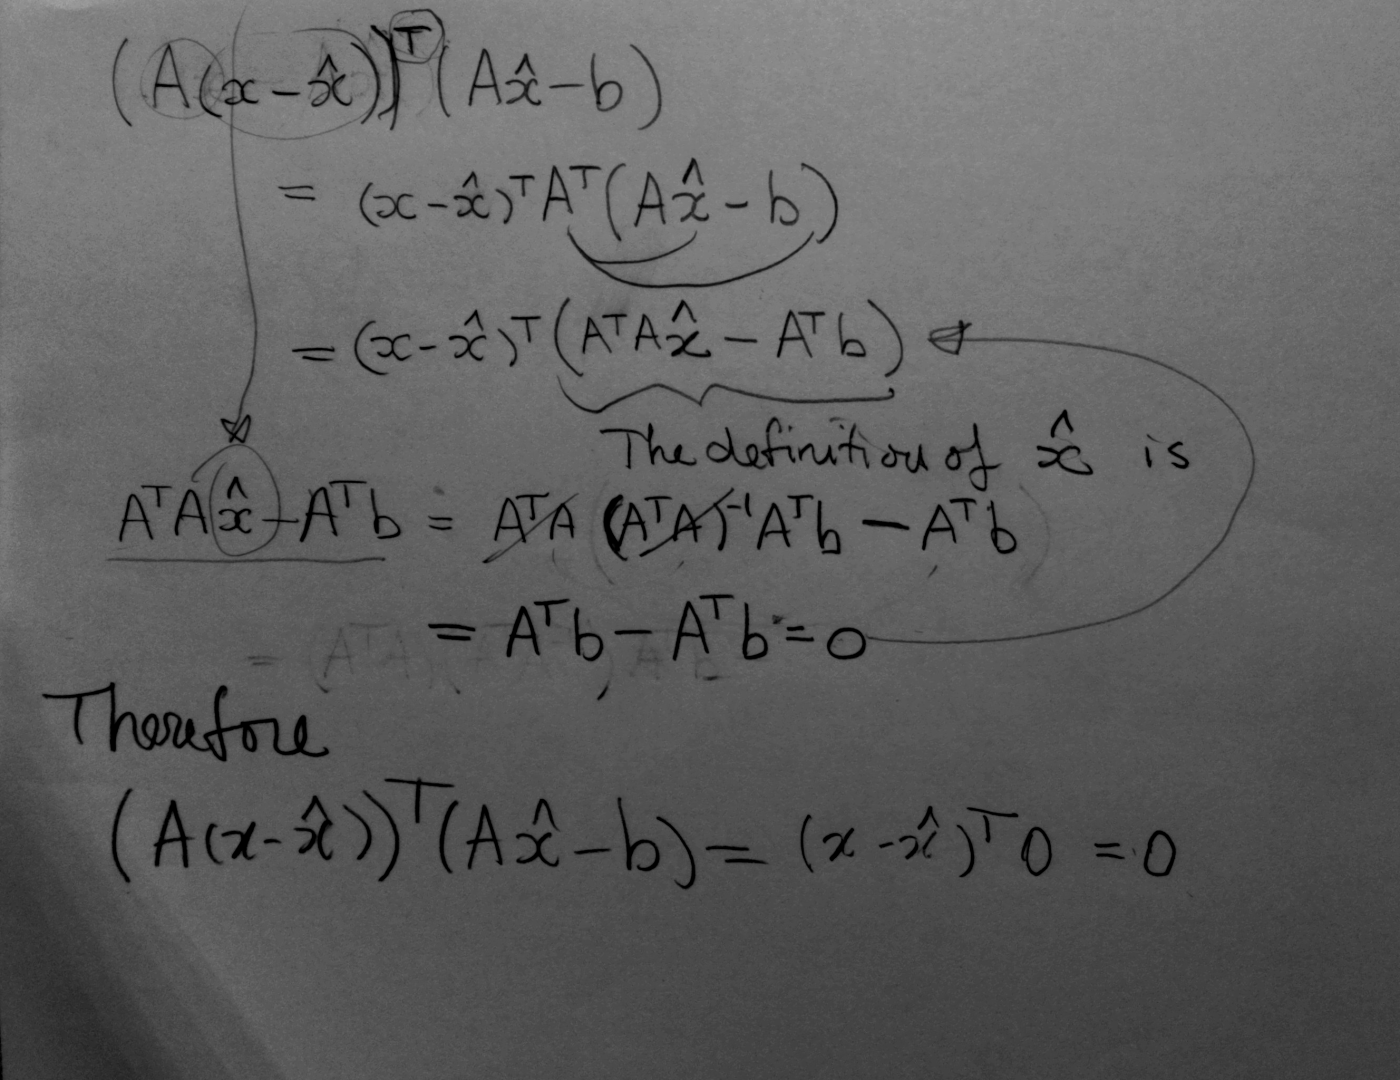 (A(x-x̂))ᵀ(Ax̂-b)
= (x-x̂)ᵀAᵀ(Ax̂-b)
= (x-x̂)ᵀ(AᵀAx̂ - Aᵀb)
The definition of x̂ is
AᵀAx̂-Aᵀb = AᵀA (AᵀA)⁻¹Aᵀb - Aᵀb
= Aᵀb - Aᵀb = 0
Therefore
(A(x-x̂))ᵀ(Ax̂-b) = (x-x̂)ᵀ0 = 0